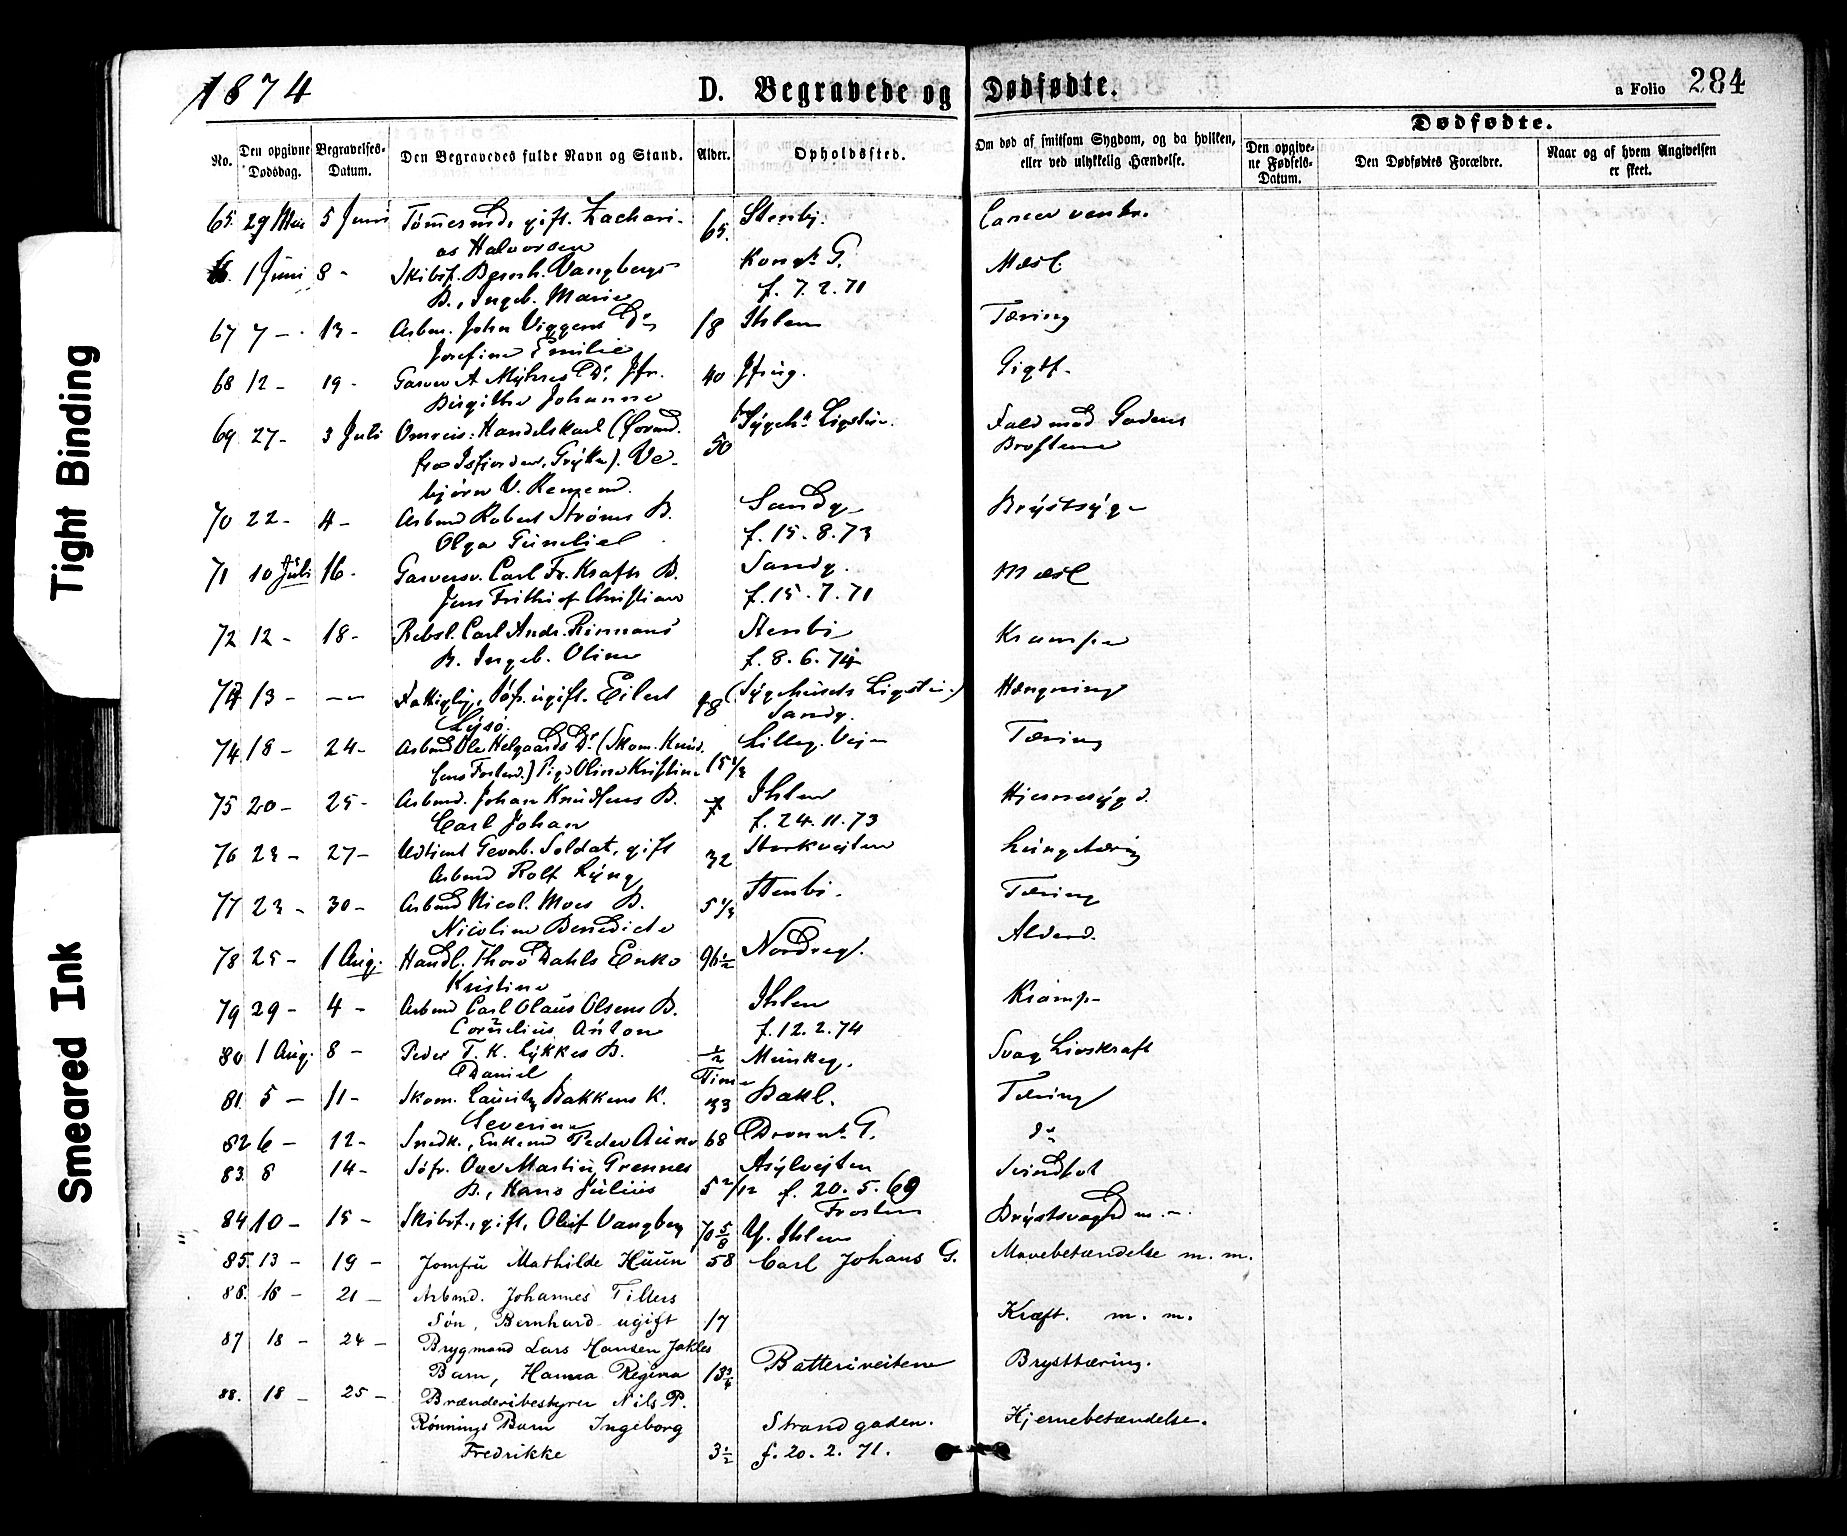 1874
D. Begravede og Dødfødte.
a Folio 284
No.
Den opgivne Dødsdag.
Begravelses-Datum.
Den Begravedes fulde Navn og Stand.
Alder.
Opholdssted.
Om død af smitsom Sygdom, og da hvilken,
eller ved ulykkelig Hændelse.
Dødfødte.
Den opgivne Fødsels-Datum.
Den Dødfødtes Forældre.
Naar og af hvem Angivelsen er skeet.
Tight Binding
Smeared Ink
65. 29 Mai 5 Juni Tømmermd. gift. Zachari- 65. Stenbj. Cancer ventr.
as Halvorsen
1 Juni 8 - Skibsf. Bernh. Vangbergs Kongs G. Mæsl.
B., Ingeb. Marie f. 7.2.71
67 7 - 13 - Arbm. John Viggens Dr 18 Ihlen Tæring
Josefine Emilie
68 12 - 19 - Garver A Myhres Dr. Jfr. 40 Gigtf.
Birgitte Johanne
69 27 - 3 Juli Omreis. Handelskarl 50 Fald mod Gadens
Brostene
70 22 - 4 - Arbmd Robert Strøms B. Sandg. Brystsyge
Olga f. 15.8.73
71 10 Juli 16 - Carl Fr. Krafts B. Sandg. Mæsl
Jens Frithiof Christian f. 15.7.71
72 12 - 18 - Rebsl. Carl Andr. Rinnans Stenbj Krampe
B. Ingeb. Oline f. 8.6.74
13 - - - Fattiglig, Søf. ugift. Eilert (Sygehusets Ligstue) Hængning
Lysø. Sandg.
74 18 - 24 - Arbmd Ole Helgaards Dr (Skom. Knud- 15 1/2 Tæring
Pige Oline Kristine
75 20 - 25 - Arbmd. Johan Knudsens B. Ihlen
Carl Johan f. 24.11.73
76 23 - 27 - Gevorb. Soldat, gift 32 Lungetæring
Arbmd Rolf Lyng
77 23 - 30 - Arbmd Nicol. Moes B. Stenbj. Tæring
Nicoline Benedicte
78 25 - 1 Aug. Handl. Thore Dahls Enke 96 1/2 Alderd.
Kristine
79 29 - 4 - Arbmd Carl Olaus Olsens B. Ihlen Krampe
Cornelius Anton f. 12.2.74
80 1 Aug. 8 - Peder T. K. Lykkes B. 1/2 Munkeg. Svag Livskraft
Daniel Time
81. 5 - 11 - Skom. Lauritz Bakkens K. 33 Bakl. Tæring
Severine
82 6 - 12 - Snedk., Enkemd Peder Aune 68 Dronns. G. do
83. 8 14 - Søfr. Ove Martin Grennes Asylveiten
B., Hans Julius 5 2/12 f. 20.5.69
Frosten
84 10 - 15 - Skibsf., gift, Oluf Vangberg 70 5/8 Y. Ihlen Brystsvaghed m. m.
85. 13 - 19 - Jomfru Mathilde Huun 58 Carl Johans G. Mavebetændelse m. m.
86. 16 - 21 - Arbmd. Johannes Tillers
Søn, Bernhard ugift 17 Kræft. m. m.
87 18 - 24 - Brygmand Lars Hansen
Barn, Hanna Regina 13 3/4 Batteriveitene Brysttæring.
88. 18 - 25 - Brænderibestyrer Nils P.
Rønnings Barn Ingeborg Strandgaden. Hjernebetændelse.
Fredrikke 3 1/2 f. 20.2.71.